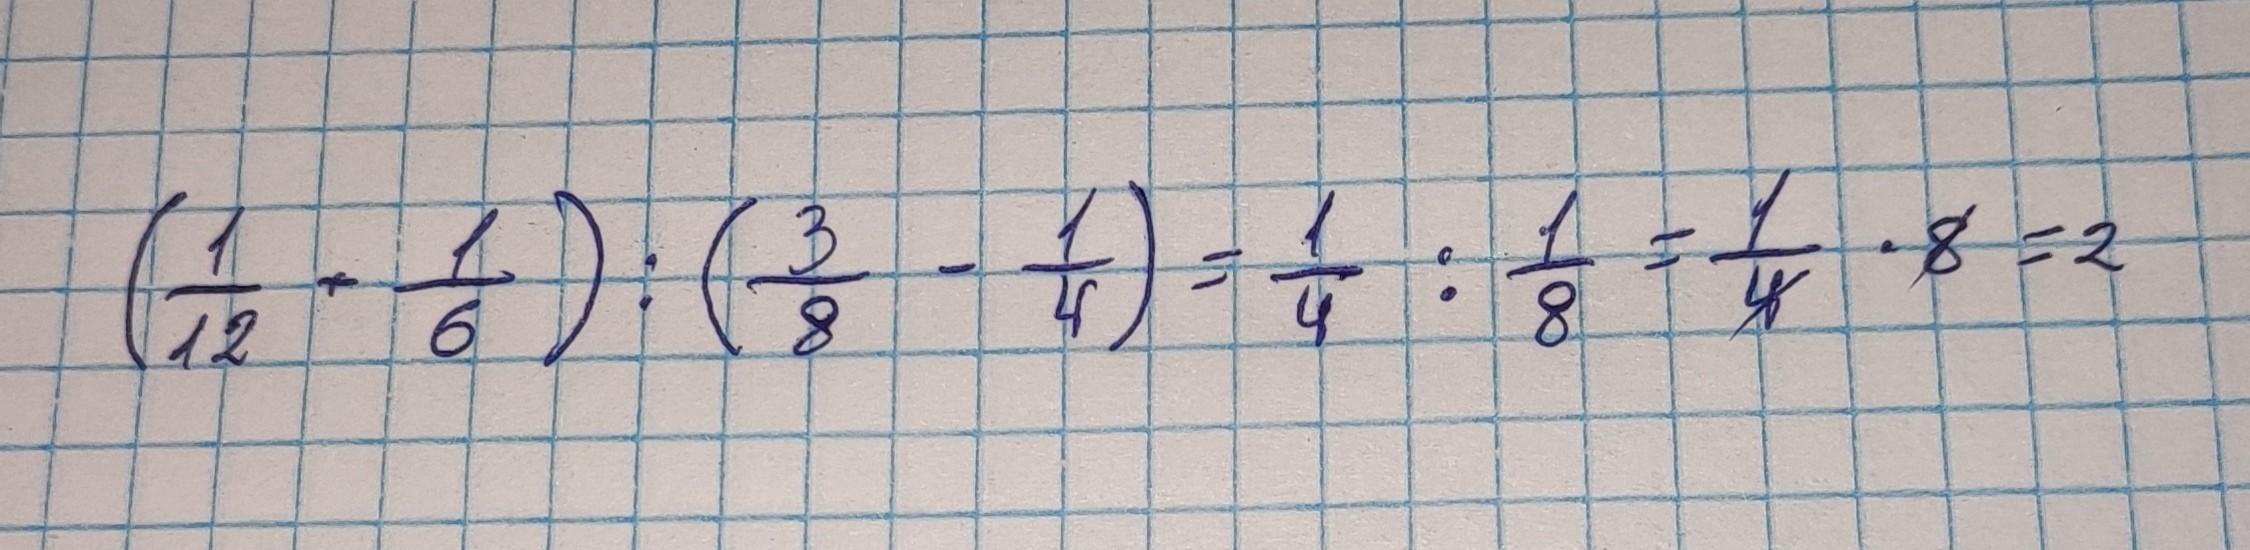 (1/12 + 1/6) : (3/8 - 1/4) = 1/4 : 1/8 = 1/4 · 8 = 2